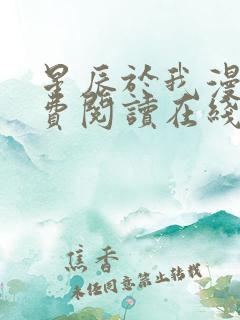 星辰於我漫
費閱讀在綫
焦香
未经同意禁止转载